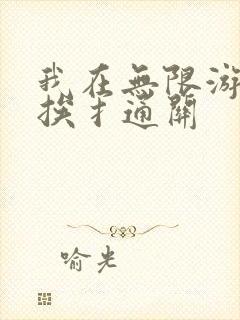 我在無限游
挨扌通關
喻光